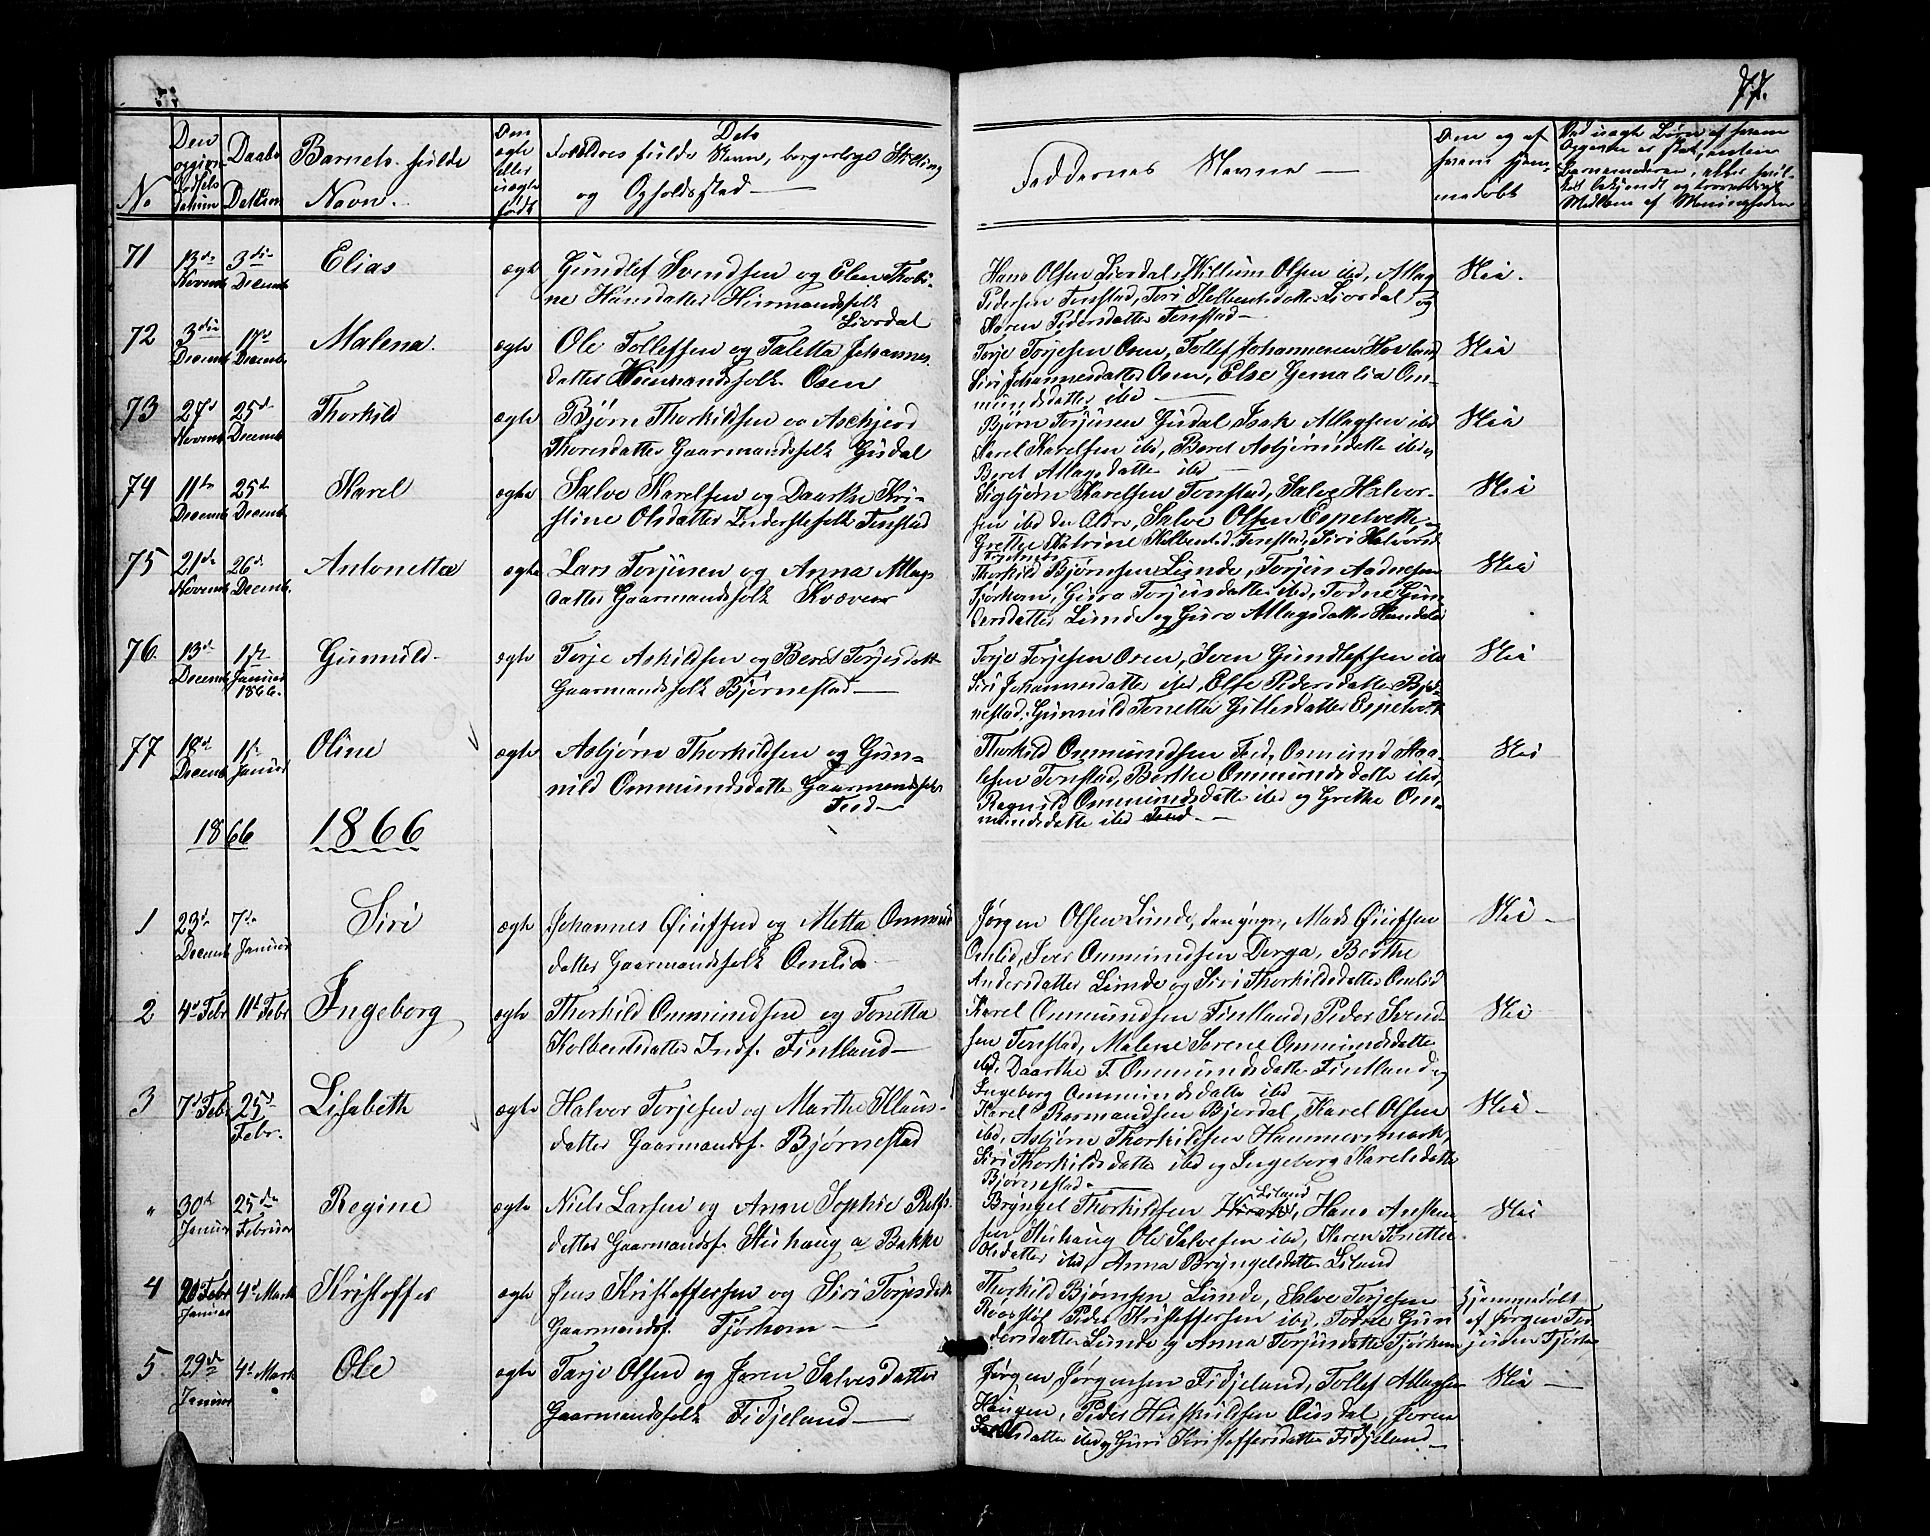 77.
No
Den opgivne Fødsels datum
Daabs Datum
Barnets fulde Navn.
Om ægte eller uægte født
Forældres fulde Navn, borgerlige Stilling og Opholdsstad
Faddernes Navne
Om og af hvem hjemmedøbt
71 13de Novemb 3die Decemb Elias ægte Gundlef Svendsen og Elen Thobi-
ne Hansdatter Huusmandsfolk
Liordal
Hans Olsen Liordal, Willum Olsen ibd, Atlag
Pedersen Tonstad, Tori Kolbentsdatter Liordal og
Karen Pedersdatter Tonstad
Nei.
72 3die Decemb 17de Decemb Malena. ægte Ole Tollefsen og Taletta Johannes
datter Huusmandsfolk Osen
Torje Torjesen Osen, Tollef Johannesen Hovland,
Siri Johannesdatter Osen, Else Gemalia Om-
mundsdatter ibd
Nei
73 27d Novemb 25d Decemb Thorkild ægte Bjørn Thorkildsen og Aschjerd
Thoresdatter Gaarmandsfolk Gusdal
Bjørn Torjusen Gusdal, Isak Atlagsen ibd
Karel Karelsen ibd, Beret Asbjørnsdatter ibd og
Beret Atlagsdatter ibd
Nei
74 11te Decemb 25d Decemb Karel ægte Salve Karelsen og Daarthe Kri-
stine Olsdatter Inderstefolk Tonstad
Sigbjørn Karelsen Tonstad, Salve Halvor-
sen ibd den Ældre, Salve Olsen Espetvedt og
Grethe Katrine Kolbentsd. Tonstad, Siri Halvorsd
Nei
75 21de Novemb 26d Decemb Antonetta ægte Lars Torjusen og Anna Atlags
datter Gaarmandsfolk Kvæven
Thorkild Bjørnsen Lunde, Torjus Aadnesen
Tjørhom, Guro Torjusdatter ibd, Todne Gun-
dersdatter Lunde og Guro Atlagsdatter Handeland
Nei
76. 13d Decemb 1ste Januar 1866. Gunnild. ægte Torje Askildsen og Beret Torjesdatt
Gaarmandsfolk Bjørnestad
Torje Torjesen Osen, Sven Gundlefsen ibd
Siri Johannesdatter ibd, Else Pedersdatter Bjør-
nestad, Gunnild Tonetta Gitlesdatter Espetvedt
Nei
77 18d Decemb 1ste Januar Oline ægte Asbjørn Thorkildsen og Gun-
nild Ommundsdatter Gaarmandsfolk
Fied
Thorkild Ommundsen Fied, Osmund Kaa-
lesen Tonstad, Berthe Ommundsdatter ibd,
Ragnild Ommundsdatter ibd og Grethe Om-
mundsdatter ibd
Nei
1866 1866
1 23d Decemb 7de Januar Siri ægte Johannes Øiufsen og Metta Ommund
datter Gaarmandsfolk Omlid
Jørgen Olsen Lunde, den yngre, Mads Øiufsen
Omlid, Iver Ommundsen Derga, Berthe
Andersdatter Lunde og Siri Thorkildsdatter Omlid
Nei
2 4d Febr 11te Febr Ingeborg ægte Thorkild Ommundsen og Tonetta
Kolbentsdatter Indf. Fintland
Karel Ommundsen Fintland, Peder Svend-
sen Tonstad, Malene Serene Ommundsdatter
ibd, Daarthe T. Ommundsdatter Fintland og
Ingeborg Ommundsdatter ibd
Nei
3 7d Febr 25d Febr. Lisabeth ægte Halvor Torjesen og Marthe Klaus-
datter Gaarmandsf. Bjørnestad
Karel Rasmundsen Bjordal, Karel Olsen
ibd, Asbjørn Thorkildsen Hammersmark,
Siri Thorkildsdatter ibd og Ingeborg Karelsdatter
Bjørnestad
Nei
" 30d Januar 25de Februar Regine ægte Niels Larsen og Anne Sophie Rolfs
datter Gaarmandsf. Stuhaug a Bakke
Bryngel Thorkildsen Liland, Hans Ansten-
sen Stuhaug Ole Salvesen ibd, Karen Tonette
Olsdatter ibd, Anna Bryngelsdatter Liland
Nei
4 20 Januar 4d Marts Kristoffer ægte Jens Kristoffersen og Siri Torjesdatt
Gaarmandsf. Tjørhom
Thorkild Bjørnsen Lunde, Salve Torjesen
Roostøl Peder Kristoffersen ibd, Todne Gun
dersdatter Lunde og Anna Torjusdatter Tjørhom
Hjemmedøbt
af Jørgen Tor
jusen Tjørhom
5. 29de Januar 4d Marts Ole ægte Tarje Olsen og Joren Salvesdatter
Gaarmandsfolk Fidjeland
Jørgen Jørgensen Fidjeland, Tollef Atlagsen
Haugen, Peder Huskuldsen Ousdal, Joren
Olsdatter ibd og Guri Kristoffersdatter Fidjeland
Nei